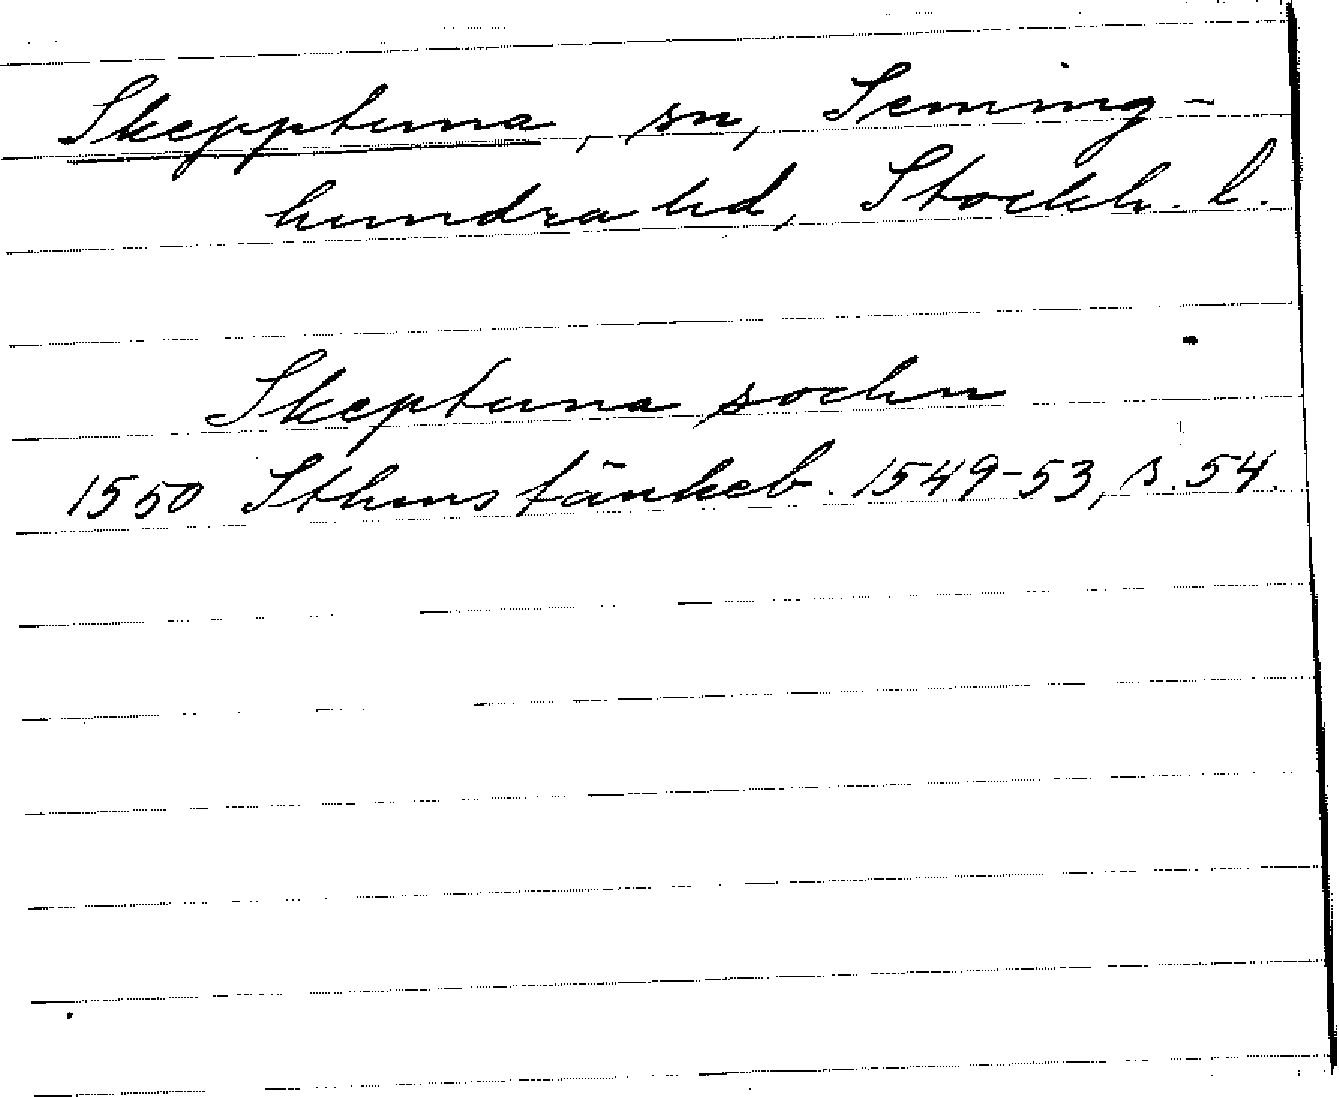 Skepptuna, sn, Seming-
hundra hd, Stockh. l.
Skeptuna sochn
1550 Sthms tänkeb. 1549-53, s. 54.